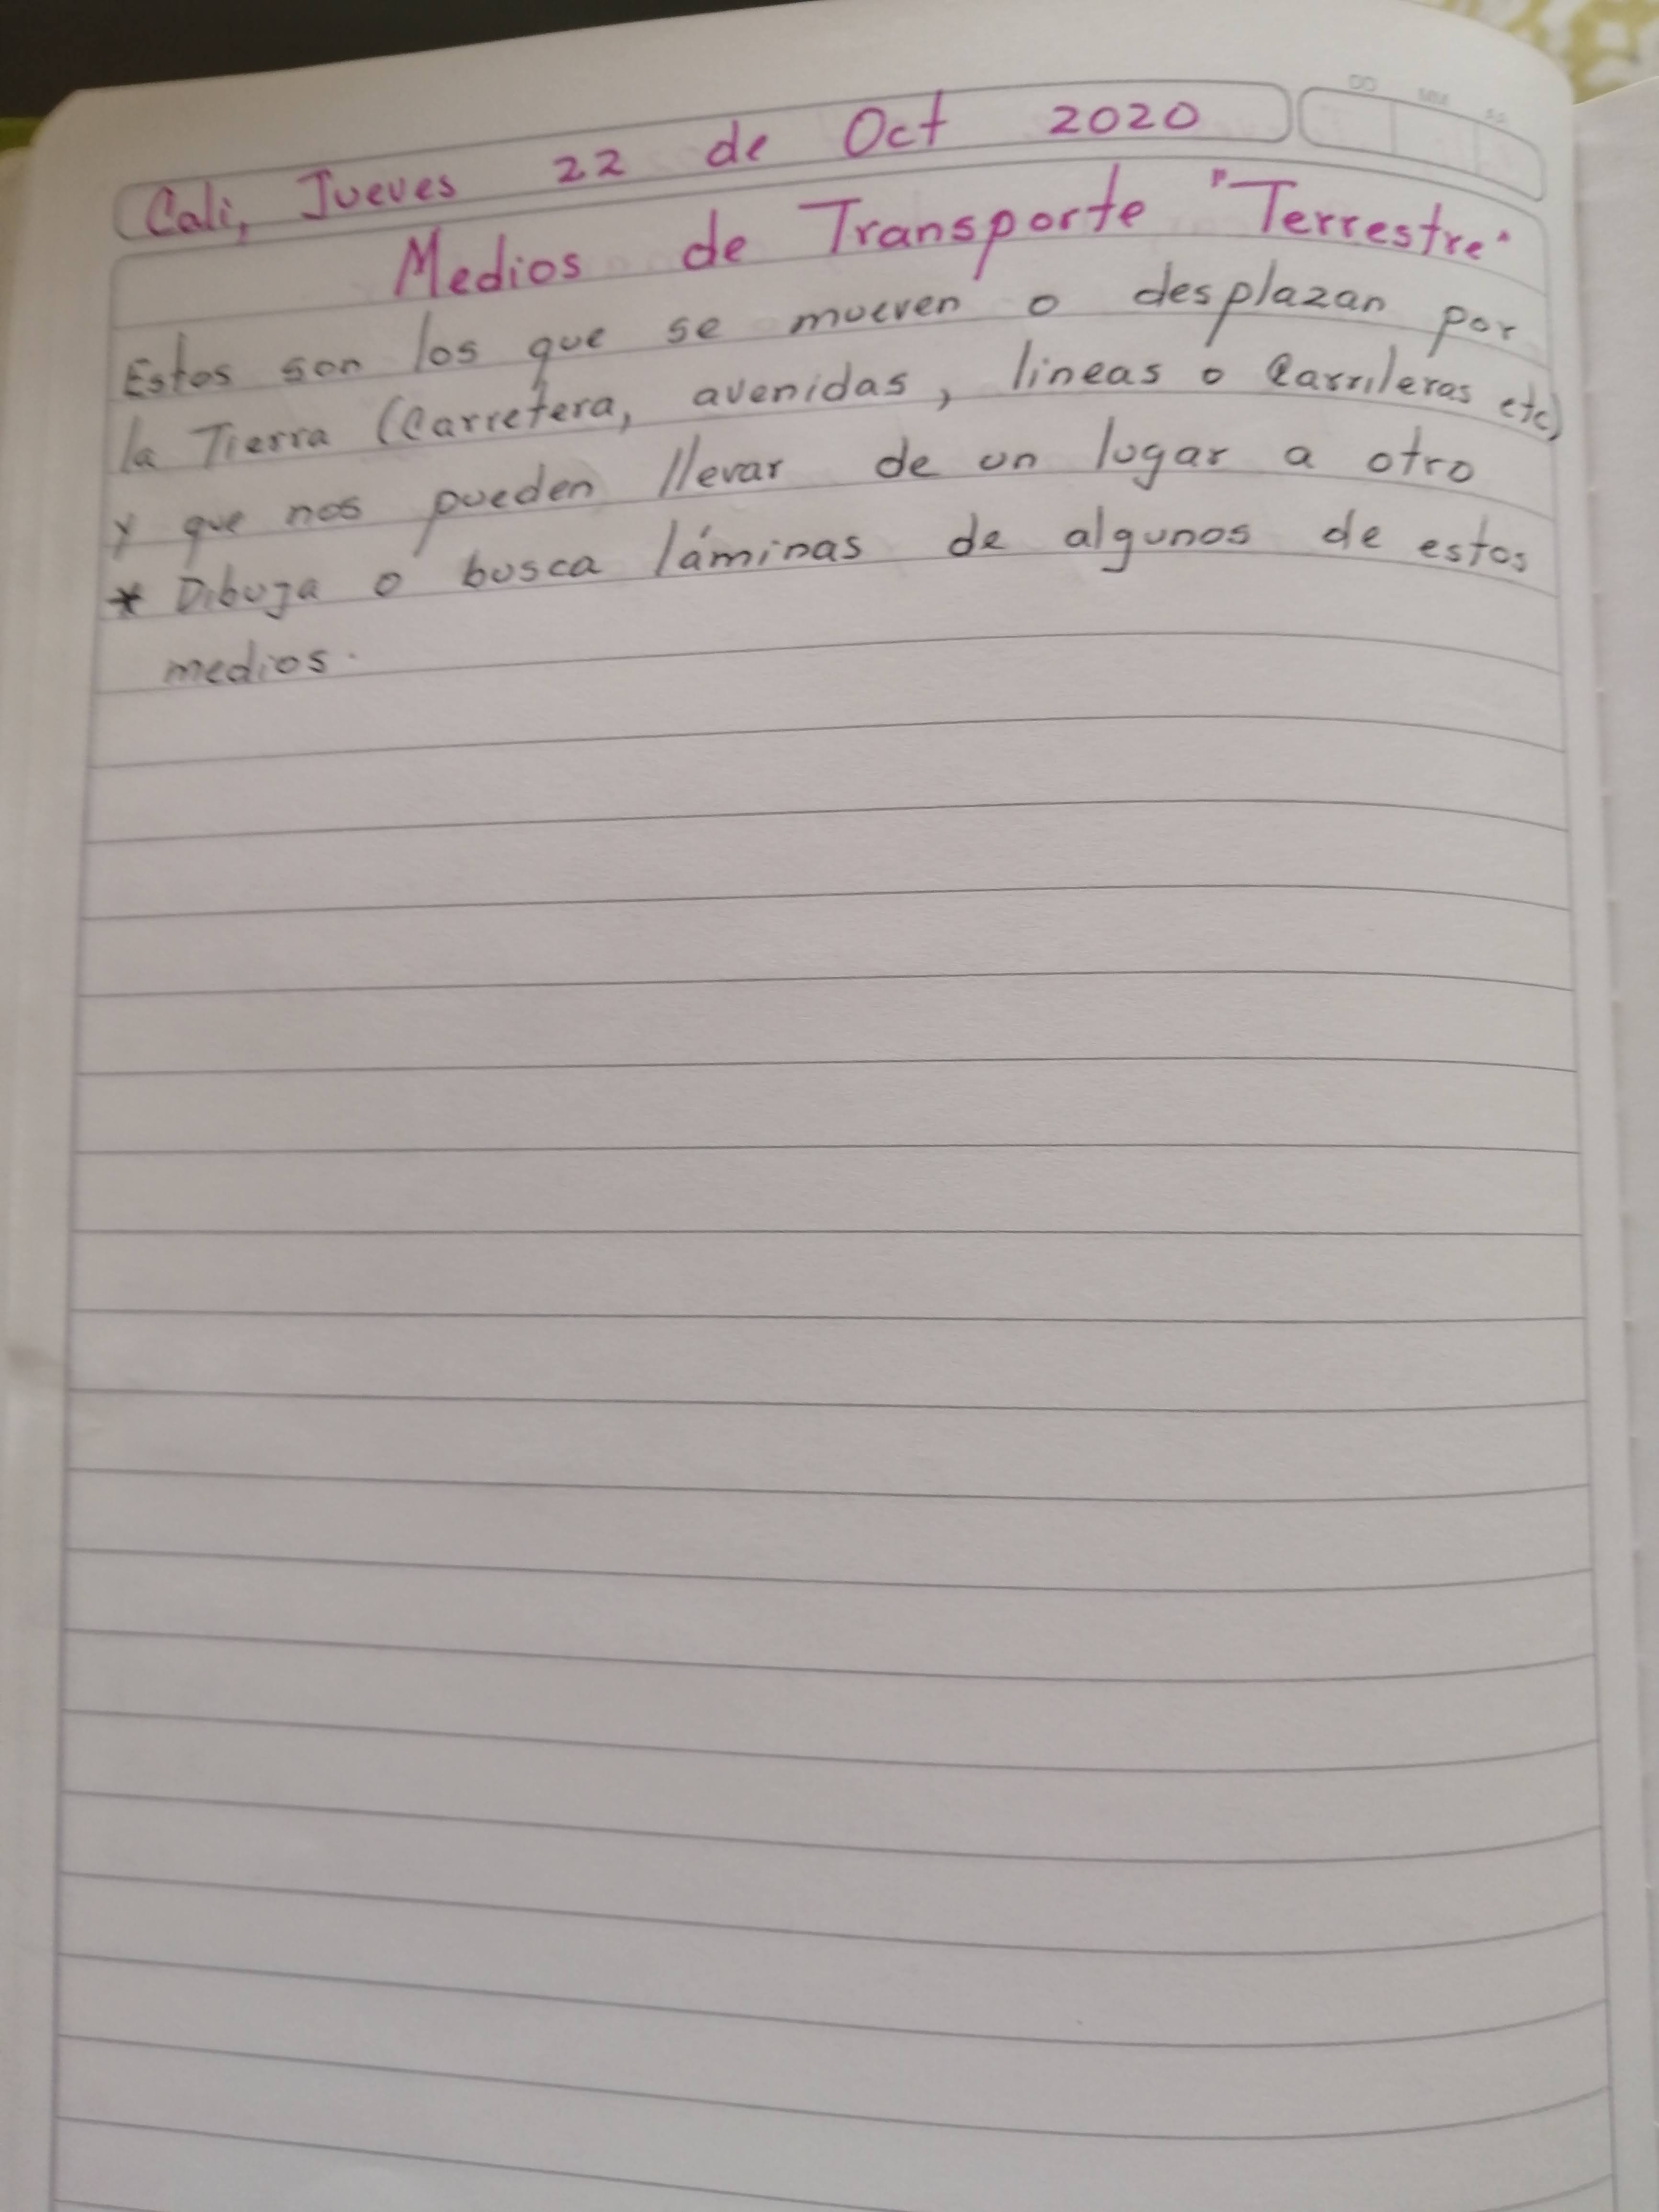 DD MM
Cali, Jueves 22 de Oct 2020
Medios de Transporte "Terrestre"
Estos son los que se mueven o desplazan por
la Tierra (Carretera, avenidas, lineas o Carrileras etc)
y que nos pueden llevar de un lugar a otro
* Dibuja o busca láminas de algunos de estos
medios.